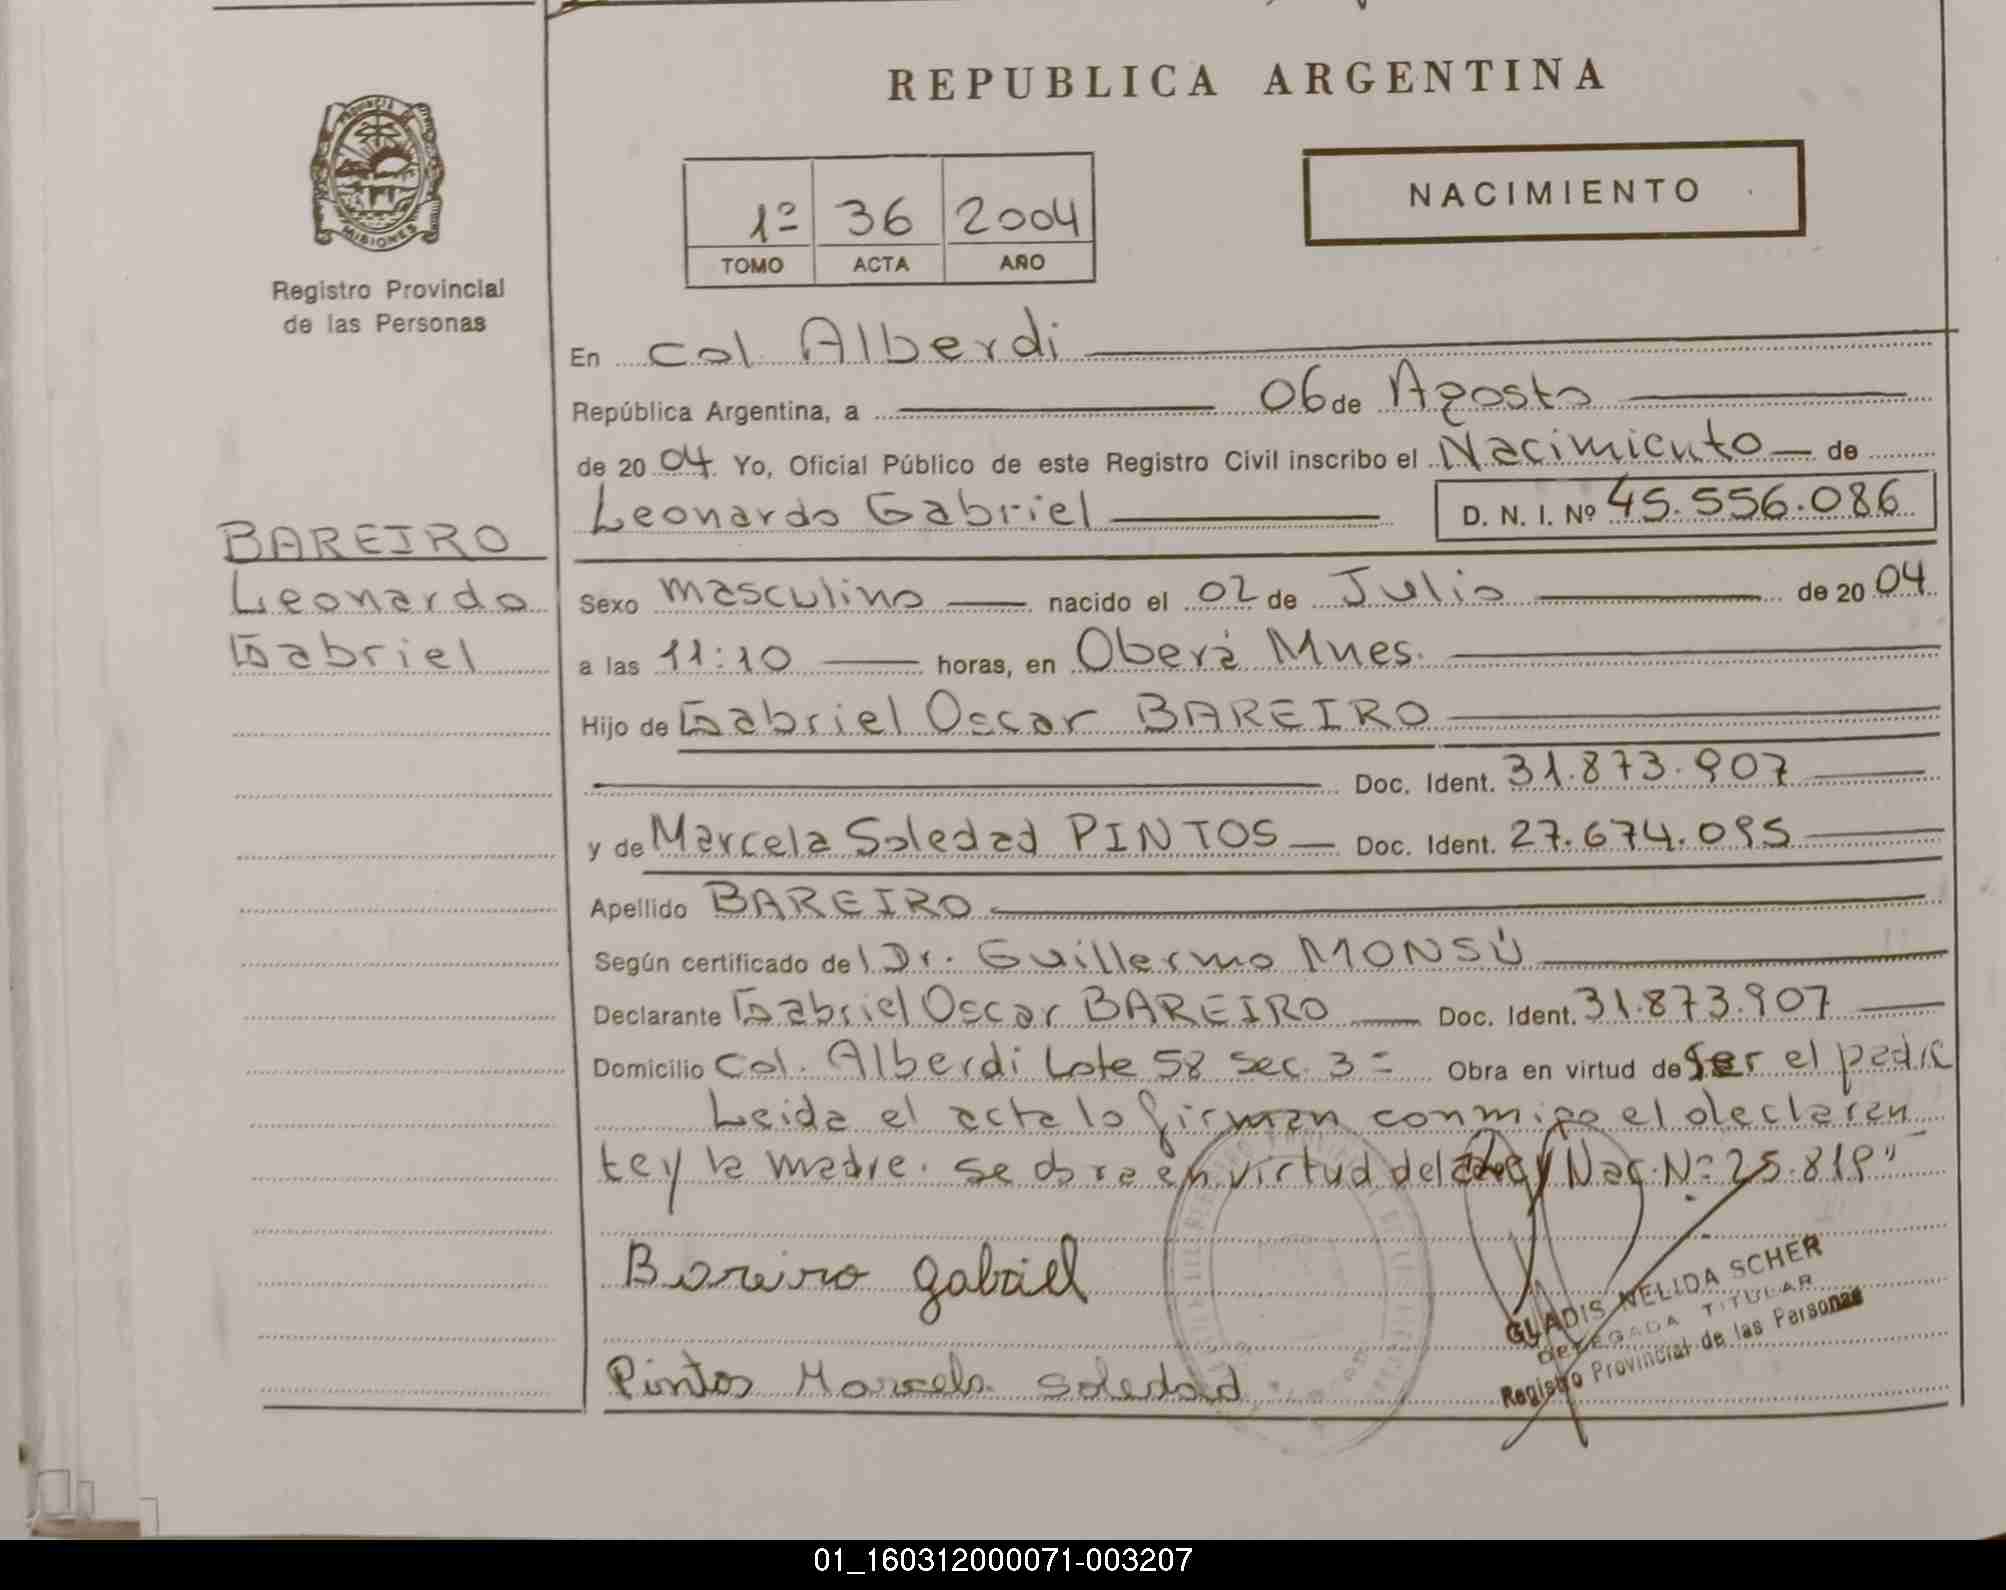 REPUBLICA ARGENTINA
PROVINCIA DE
MISIONES
Registro Provincial
de las Personas
NACIMIENTO
1º 36 2004
TOMO ACTA AÑO
En Col. Alberdi
República Argentina, a 06 de Agosto
de 2004. Yo, Oficial Público de este Registro Civil inscribo el Nacimiento de
Leonardo Gabriel D. N. I. Nº 45.556.086
BAREIRO
Leonardo
Gabriel
Sexo masculino nacido el 02 de Julio de 2004
a las 11:10 horas, en Oberá Mnes.
Hijo de Gabriel Oscar BAREIRO
Doc. Ident. 31.873.907
y de Marcela Soledad PINTOS Doc. Ident. 27.674.095
Apellido BAREIRO
Según certificado del Dr. Guillermo MONSÚ
Declarante Gabriel Oscar BAREIRO Doc. Ident. 31.873.907
Domicilio Col. Alberdi Lote 58 Sec. 3= Obra en virtud de ser el padre
Leida el acta lo firman conmigo el declaran
te y la madre. Se obra en virtud de la Ley Nac. Nº 25.819"
Bareiro Gabriel
Pintos Marcela Soledad
GLADIS NELIDA SCHER
DELEGADA TITULAR
Registro Provincial de las Personas
01_160312000071-003207